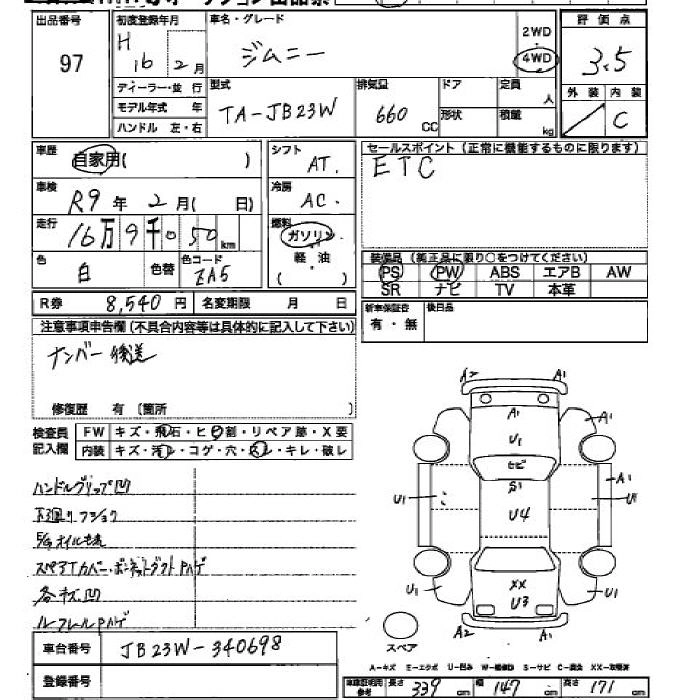 出品番号
97
初度登録年月
H
16 2月
ディーラー・並 行
モデル年式 年
ハンドル 左・右
車名・グレード
ジムニー
2WD
4WD
評 価 点
3.5
外 装 内 装
C
型式
TA-JB23W
排気量
660
CC
ドア
形状
定員
人
積載
kg
車歴
自家用( )
シフト
AT.
車検
R9 年 2 月( 日)
冷房
AC.
走行
16万9千050km
燃料
ガソリン
軽 油
( )
色
白
色替
色コード
ZA5
R券 8,540 円
名変期限 月 日
セールスポイント (正常に機能するものに限ります)
ETC
装備品 (純正品に限り○をつけてください)
PS PW ABS エアB AW
SR ナビ TV 本革
新車保証書
有 ・ 無
後日品
注意事項申告欄 (不具合内容等は具体的に記入して下さい)
ナンバー後送
修復歴 有 〔箇所 〕
検査員
記入欄
FW キズ・飛石・ヒビ割・リペア跡・X要
内装 キズ・汚レ・コゲ・穴・スレ・キレ・破レ
ハンドルグリップ凹
下廻りフショク
E/gオイルもれ
スペアTカバー・ボンネットダクトPハゲ
各キズ凹
ルーフレールPハゲ
車台番号
JB23W-340698
登録番号
A2 A1
A1
A1
U1
ヒビ
A1
S1
U1
U4
U1
XX
U3
U1
U1
A2 A1
スペア
A-キズ E-エクボ U-凹み W-補修跡 S-サビ C-腐食 XX-交換済
車庫証明用
参考
長さ 339 cm 幅 147 cm 高さ 171 cm